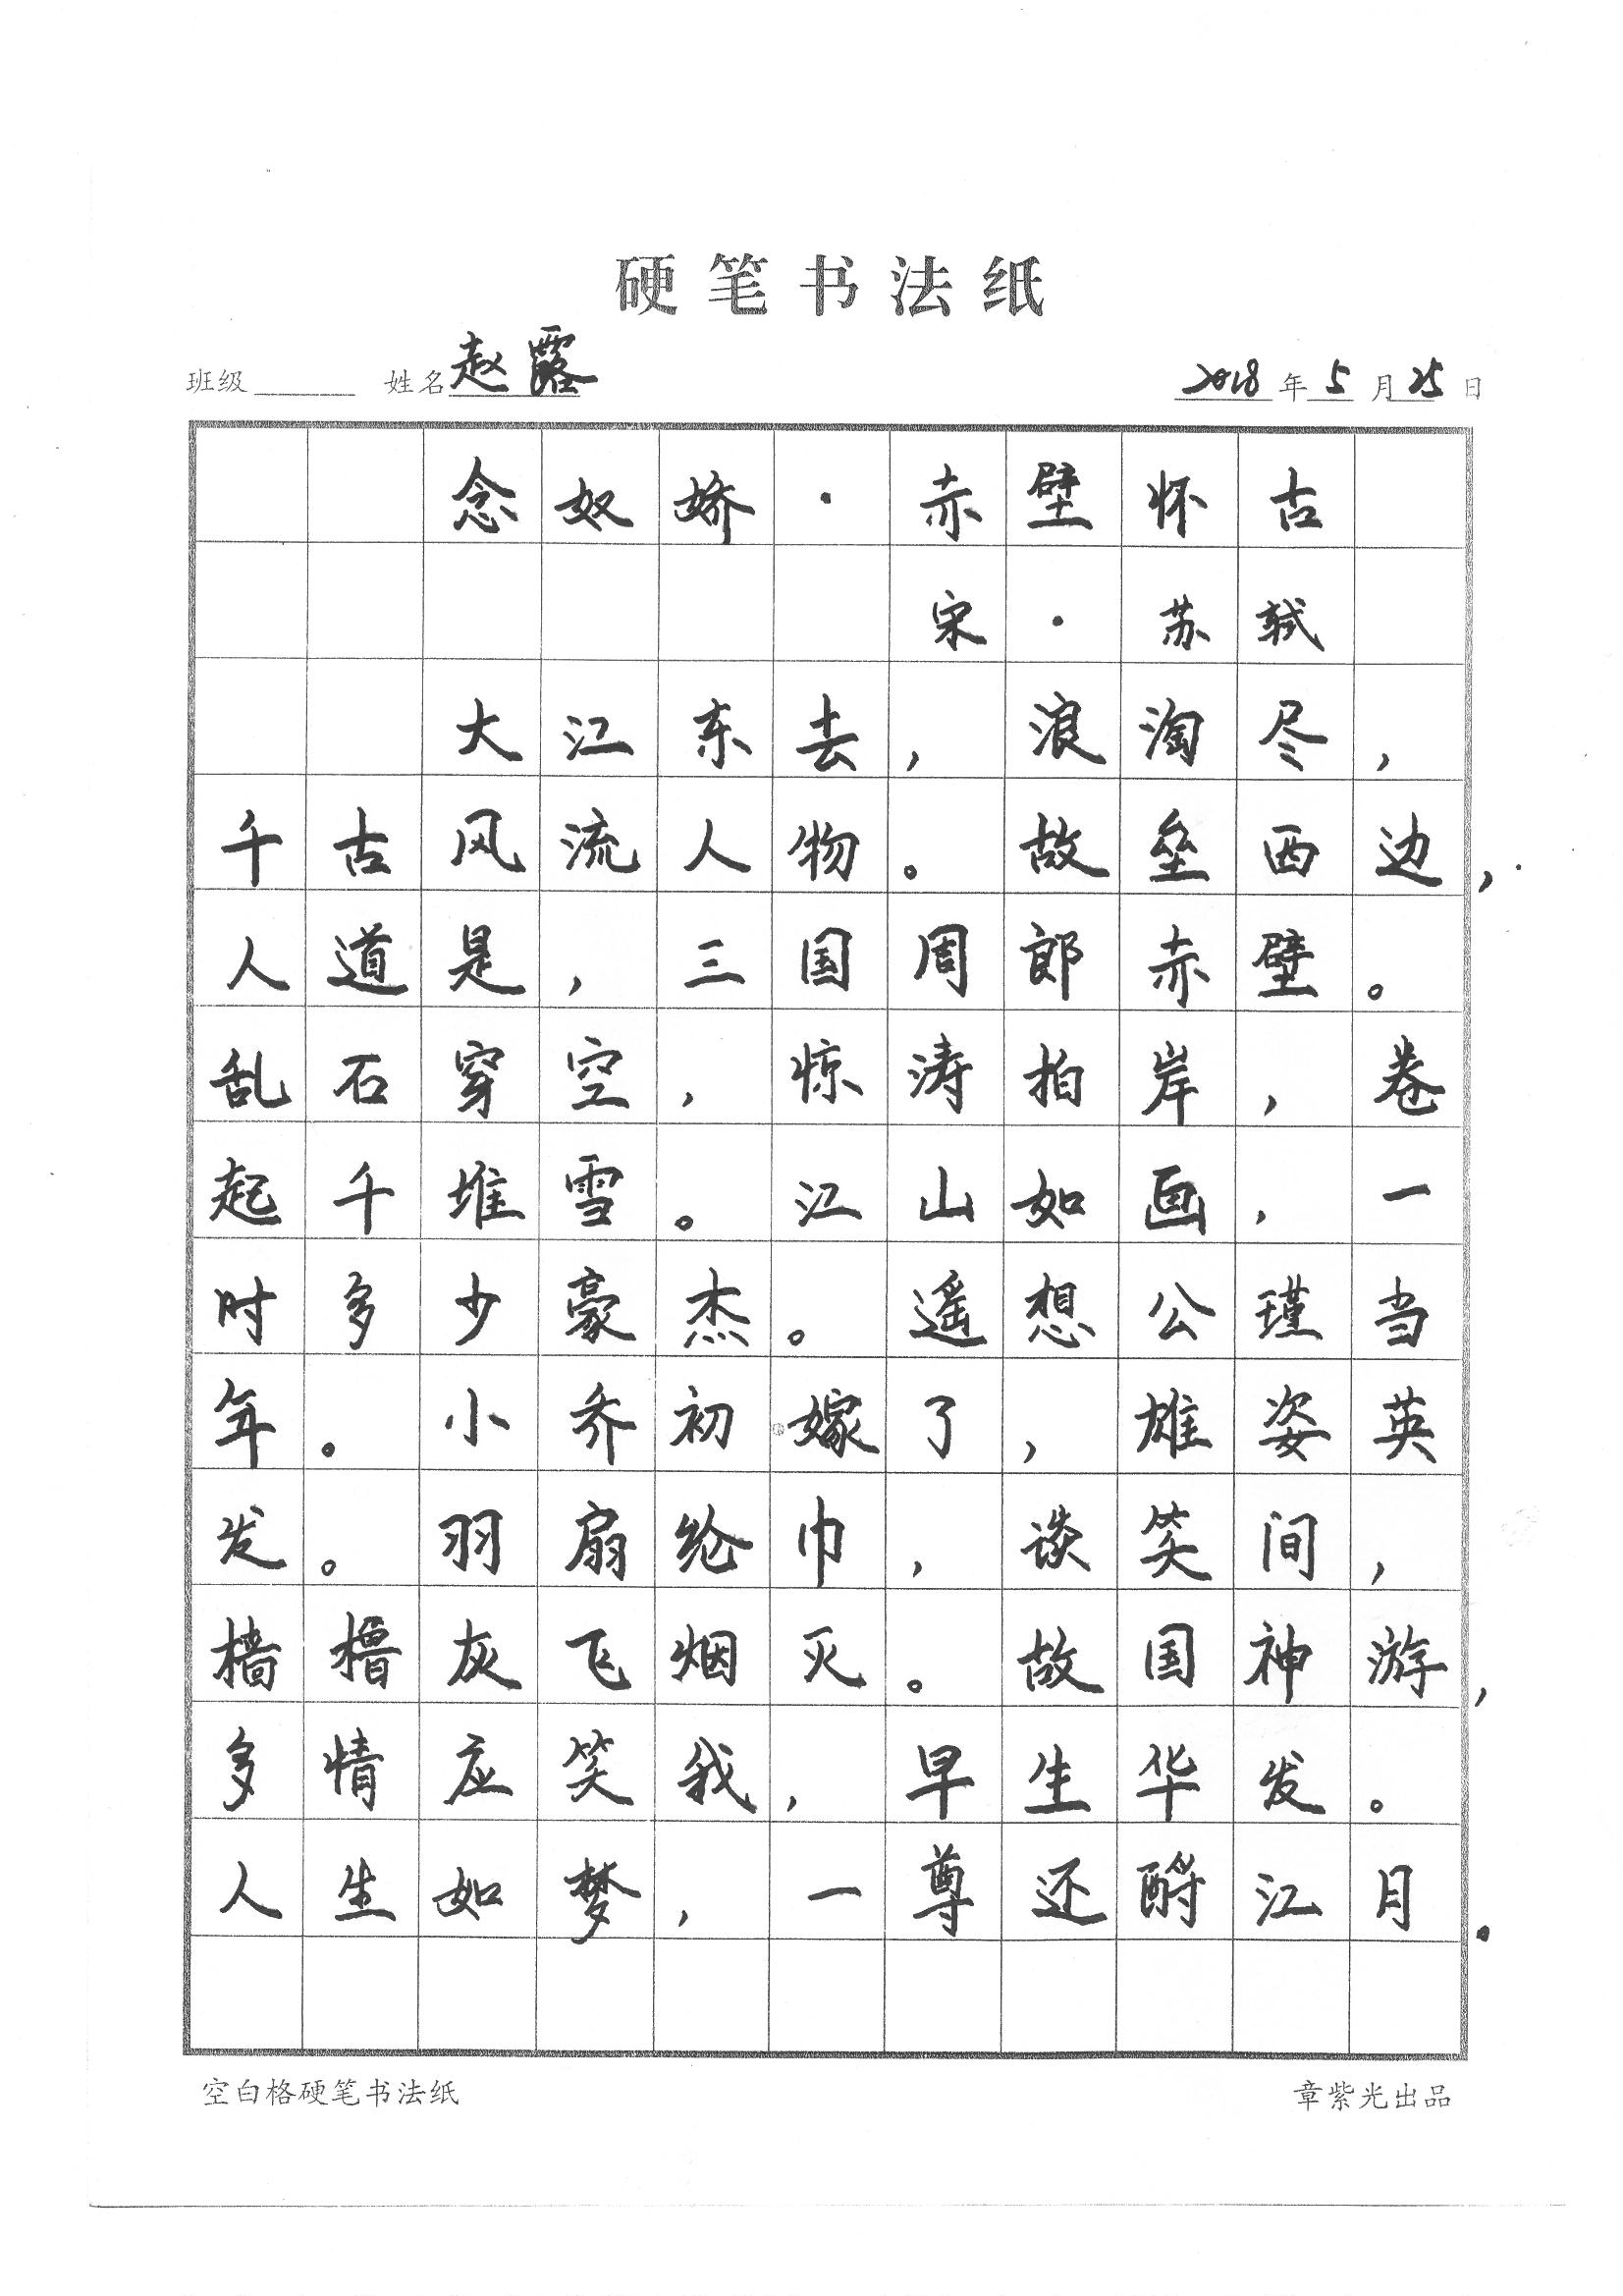 硬笔书法纸
班级 姓名 赵露 2018年5月25日
念奴娇·赤壁怀古
宋·苏轼
大江东去,浪淘尽,
千古风流人物。故垒西边,
人道是,三国周郎赤壁。
乱石穿空,惊涛拍岸,卷
起千堆雪。江山如画,一
时多少豪杰。遥想公瑾当
年。小乔初嫁了,雄姿英
发。羽扇纶巾,谈笑间,
樯橹灰飞烟灭。故国神游,
多情应笑我,早生华发。
人生如梦,一尊还酹江月.
空白格硬笔书法纸 章紫光出品